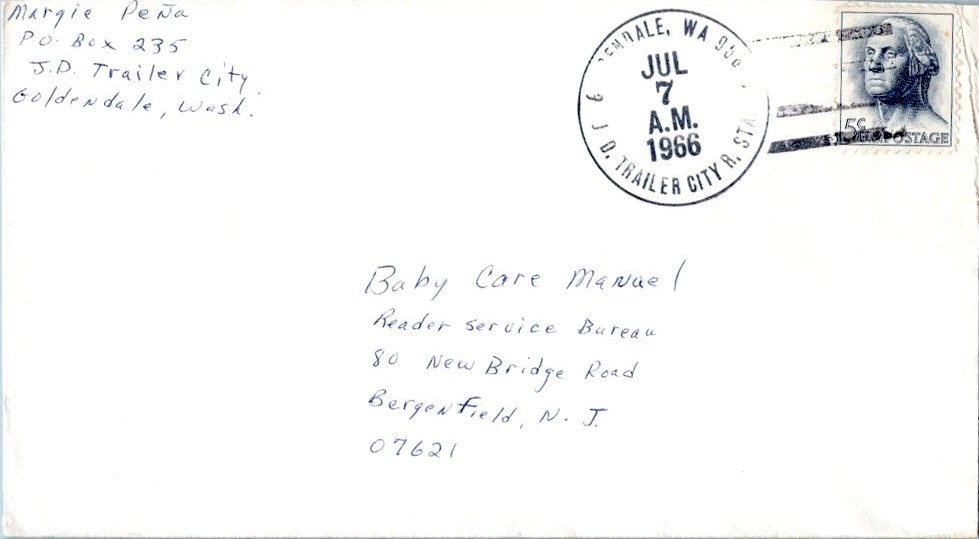 Margie Peña
P.O. Box 235
J.D. Trailer City
Goldendale, Wash.
JUL
7
A.M.
1966
J. D. TRAILER CITY R. STA.
5¢
POSTAGE
Baby Care Manuel
Reader Service Bureau
80 New Bridge Road
Bergenfield, N. J.
07621